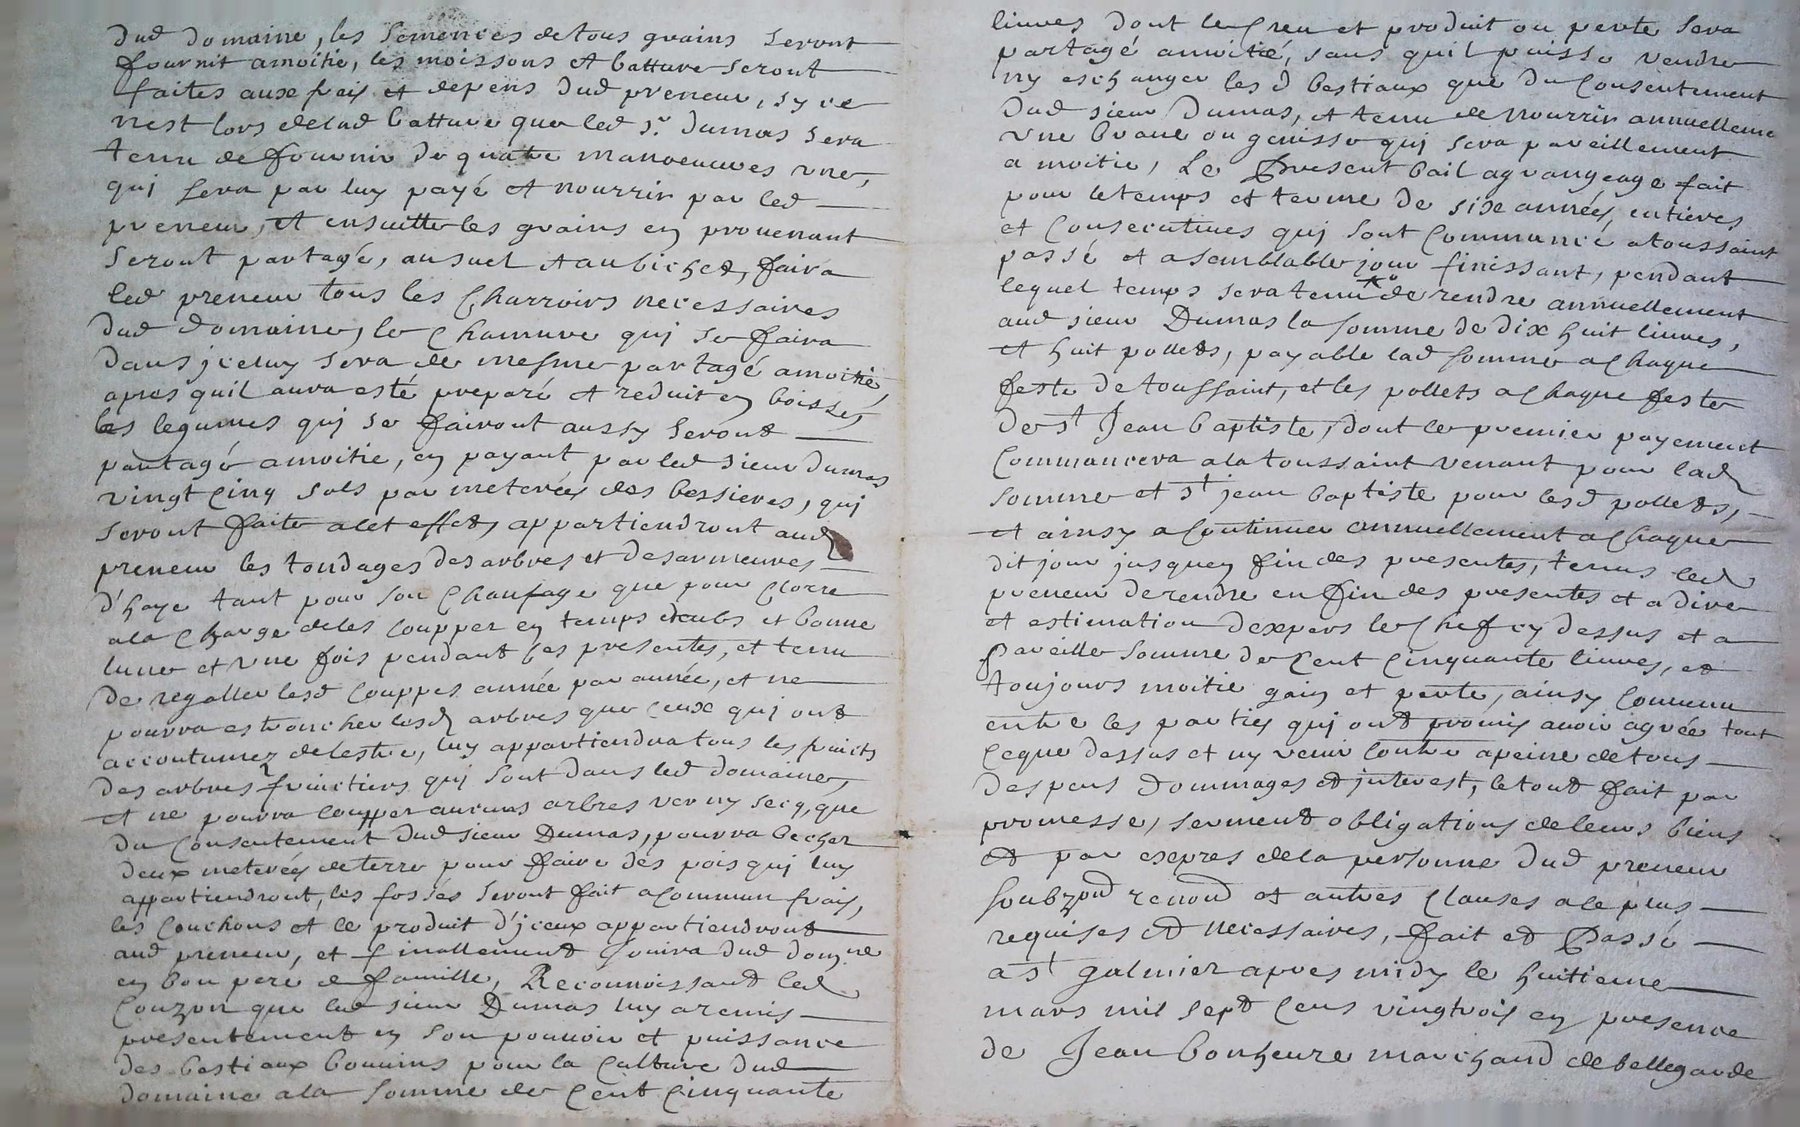 dud domaine, les semences de tous grains seront
fournit amoitie, les moissons et batture seront
faites aux frais et depens dud preneur, sy ce
nest lors delad batture que led sr dumas sera
tenu de fournir de quatre manoeuvres une,
qui sera par luy payé et nourrir par led
preneur, et ensuitte les grains en provenant
seront partagé, ausuel et aubichet, faira
led preneur tous les charroirs necessaires
dud domaine, le chamure qui se faira
dans jceluy sera de mesme partagé amoitié
apres quil aura esté preparé et reduit en boisses
les legumes qui se fairont aussy seront
partagé amoitie, en payant par led sieur dumas
vingt cinq sols par meterées des bessieres, qui
seront faite a cet effet, appartiendront aud
preneur les tondages des arbres et desarmeures
d'haye tant pour son chaufage que pour clorre
ala charge deles coupper en temps deubs et bonne
lune et une fois pendant ces presentes, et tenu
de regaller lesd couppes année par année, et ne
pourra estroncher lesd arbres que ceux qui ont
accoutumez delestre, luy appartiendra tous les fruicts
des arbres fruictiers qui sont dans led domaine,
et ne pourra coupper aucuns arbres ver ny secq, que
du consentement dud sieur Dumas, pourra becher
deux meterées deterre pour faire des pois qui luy
appartiendront, les fosses seront fait acommun frais,
les couchons et le produit d'jceux appartiendront
aud preneur, et finallement jouira dud domne
en bon pere de famille, Reconnoissant led
Couzon que led sieur Dumas luy a remis
presentement en son pouvoir et puissance
des bestiaux bouvins pour la culture dud
domaine ala somme de cent cinquante
livres dont le creu et produit ou perte sera
partagé amoitié, sans quil puisse vendre
ny eschanger les d bestiaux que du consentement
dud sieur Dumas, et tenu de nourrir annuelleme
une brave ou genisse qui sera pareillement
a moitie, Le Present bail agrangeage fait
pour le temps et terme de sixe années entieres
et consecutives qui sont commancé atoussaint
passé et a semblable jour finissant, pendant
lequel temps sera tenu de rendre annuellement
aud sieur Dumas la somme de dix huit livres,
et huit pollets, payable lad somme a chaque
feste de toussaint, et les pollets a chaque feste
de st Jean baptiste, dont le premier payement
commancera ala toussaint venant pour lad
somme et st jean baptiste pour lesd pollets,
et ainsy a continuer annuellement a chaque
dit jour jusquen fin des presentes, tenus led
preneur de rendre en fin des presentes et a dire
et estimation dexpers le chef cy dessus et a
pareille somme de cent cinquante livres, et
toujours moitie gain et perte, ainsy convenu
entre les parties qui ont promis avoir agrée tout
ceque dessus et ny venir contre apeine de tous
despens dommages et jnterest, le tout fait par
promesse, serment obligations deleurs biens
et par exepres dela personne dud preneur
soubzond renond et autres clauses ale plus
requises et necessaires, fait et Passé
a st galmier apres midy le huitieme
mars mil sept cens vingtrois en presence
de Jean bonheure marchand de bellegarde